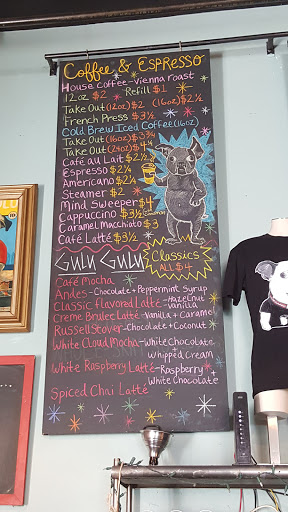 Coffee & Espresso
House coffee-Vienna roast
12oz $2 Refill $1
Take Out (12oz) $2 (16oz) $2½
French Press $3½
Cold Brew Iced Coffee (16oz)
Take Out (16oz) $3¾
Take Out (24oz) $4¼
Café au Lait $2½
Espresso $2¼
Americano $2¼
Steamer $2
Mind Sweeper $4
Cappuccino $3½
Caramel Macchiato $3
Café Latté $3½
Gulu Gulu Classics
ALL $4
Café Mocha
Andes - Chocolate + Peppermint Syrup
Classic flavored Latté - Hazelnut
Vanilla
Creme Brulee Latté - Vanilla + Caramel
Russell Stover - Chocolate + Coconut
White Cloud Mocha - White Chocolate
Whipped Cream
White Raspberry Latté - Raspberry +
White Chocolate
Spiced Chai Latté